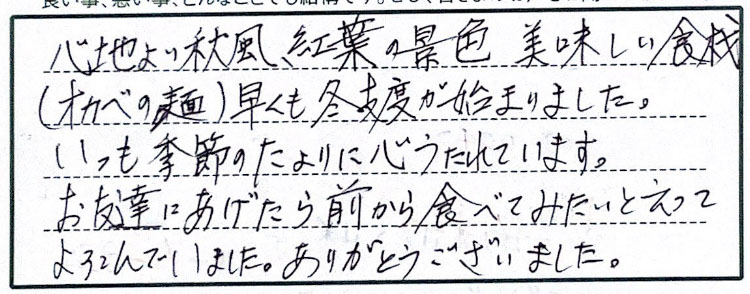 心地よい秋風、紅葉の景色 美味しい食桟
(オカベの麺)早くも冬支度が始まりました。
いつも季節のたよりに心うたれています。
お友達にあげたら前から食べてみたいと云って
よろこんでいました。ありがとうございました。